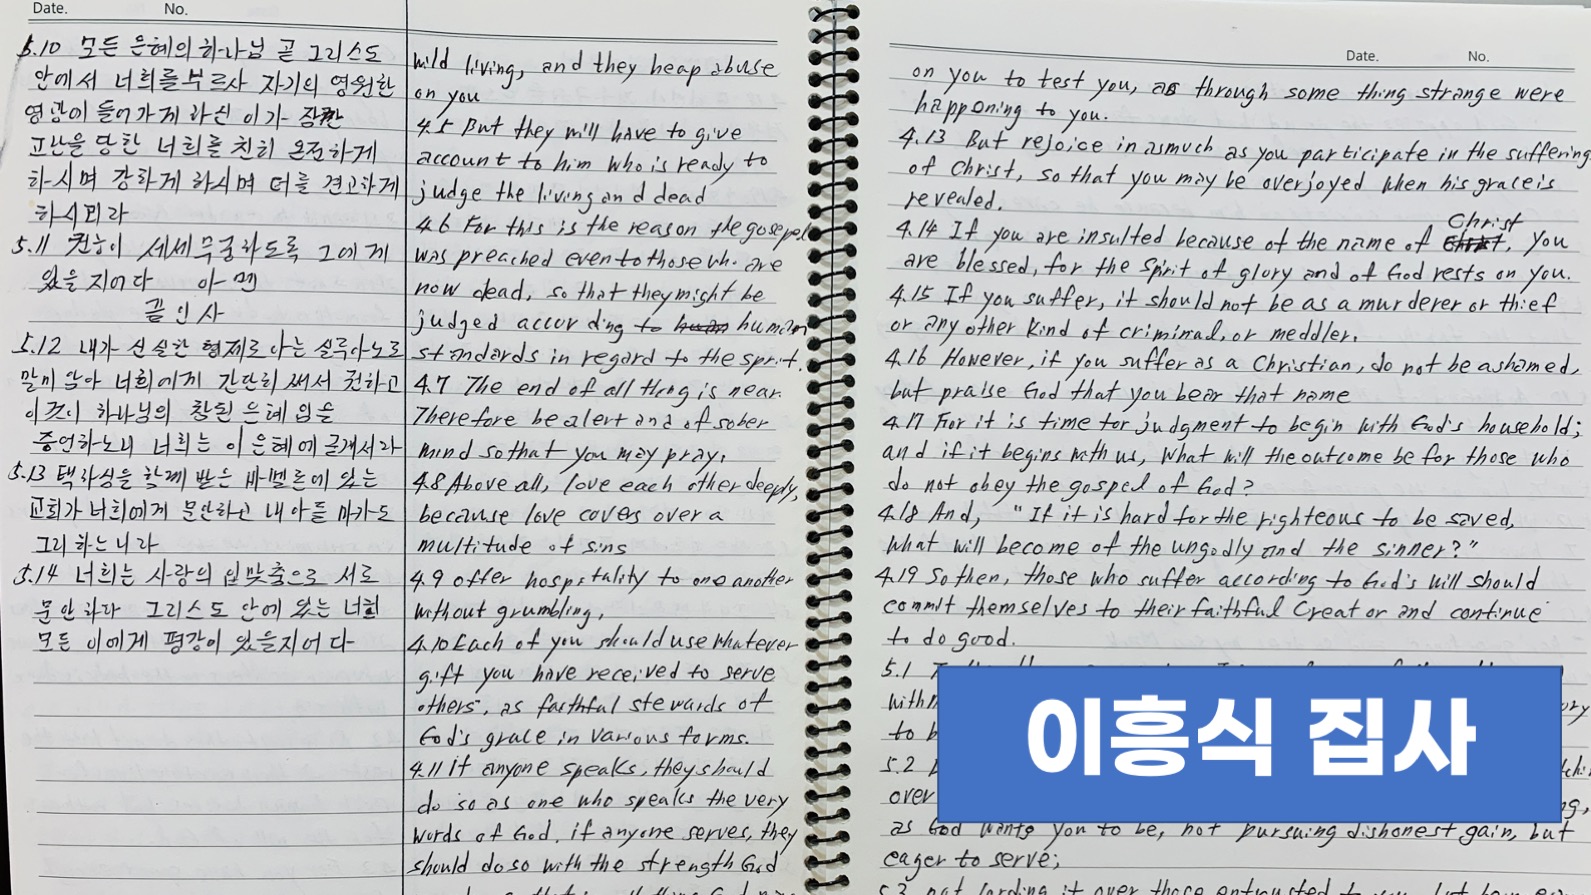 Date. No.
5.10 모든 은혜의 하나님 곧 그리스도
안에서 너희를 부르사 자기의 영원한
영광에 들어가게 하신 이가 잠깐
고난을 당한 너희를 친히 온전하게
하시며 강하게 하시며 터를 견고하게
하시리라
5.11 권능이 세세무궁하도록 그에게
있을지어다 아멘
끝인사
5.12 내가 신실한 형제로 아는 실루아노로
말미암아 너희에게 간단히 써서 권하고
이것이 하나님의 참된 은혜임을
증언하노니 너희는 이 은혜에 굳게서라
5.13 택하심을 함께 받은 바벨론에 있는
교회가 너희에게 문안하고 내 아들 마가도
그리하느니라
5.14 너희는 사랑의 입맞춤으로 서로
문안하라 그리스도 안에 있는 너희
모든 이에게 평강이 있을지어다
wild living, and they heap abuse
on you
4.5 But they will have to give
account to him who is ready to
judge the living and dead
4.6 For this is the reason the gosepel
was preached even to those who are
now dead, so that they might be
judged according to human human
standards in regard to the sprit.
4.7 The end of all thing is near.
Therefore be alert and of sober
mind so that you may pray.
4.8 Above all, love each other deeply,
because love covers over a
multitude of sins
4.9 offer hospitality to one another
without grumbling,
4.10 Each of you should use whatever
gift you have received to serve
others, as faithful stewards of
God's grace in various forms.
4.11 if anyone speaks, they should
do so as one who speaks the very
words of God. if anyone serves, they
should do so with the strength God
Date. No.
on you to test you, as through some thing strange were
happoning to you.
4.13 But rejoice inasmuch as you participate in the suffering
of Christ, so that you may be overjoyed when his grace is
revealed.
Christ
4.14 If you are insulted because of the name of Christ, you
are blessed, for the Spirit of glory and of God rests on you.
4.15 If you suffer, it should not be as a murderer or thief
or any other kind of criminal, or meddler.
4.16 However, if you suffer as a Christian, do not be ashamed,
but praise God that you bear that name
4.17 For it is time for judgment to begin with God's household;
and if it begins with us, what will the outcome be for those who
do not obey the gospel of God?
4.18 And, "If it is hard for the righteous to be saved,
what will become of the ungodly and the sinner?"
4.19 So then, those who suffer according to God's will should
commit themselves to their faithful Creator and continue
to do good.
5.1
to
5.2
over
이흥식 집사
as God wants you to be, not pursuing dishonest gain, but
eager to serve;
5.3 not lording it over those entrusted to you, but